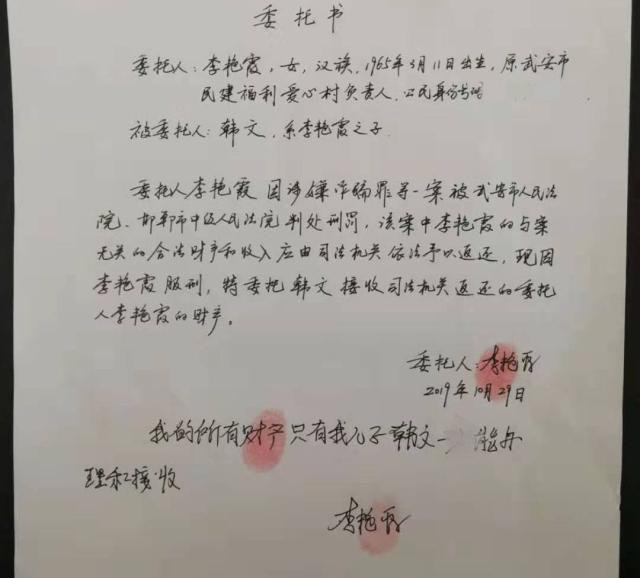 委托书
委托人：李艳霞，女，汉族，1965年3月11日出生，原武安市
民建福利爱心村负责人，公民身份号码
被委托人：韩文，系李艳霞之子.
委托人李艳霞因涉嫌诈骗罪等一案被武安市人民法
院、邯郸市中级人民法院判处刑罚，该案中李艳霞的与案
无关的合法财产和收入应由司法机关依法予以返还，现因
李艳霞服刑，特委托韩文接收司法机关返还的委托
人李艳霞的财产。
委托人：李艳霞
2019年10月29日
我的所有财产只有我儿子韩文一 能办
理和接收
李艳霞